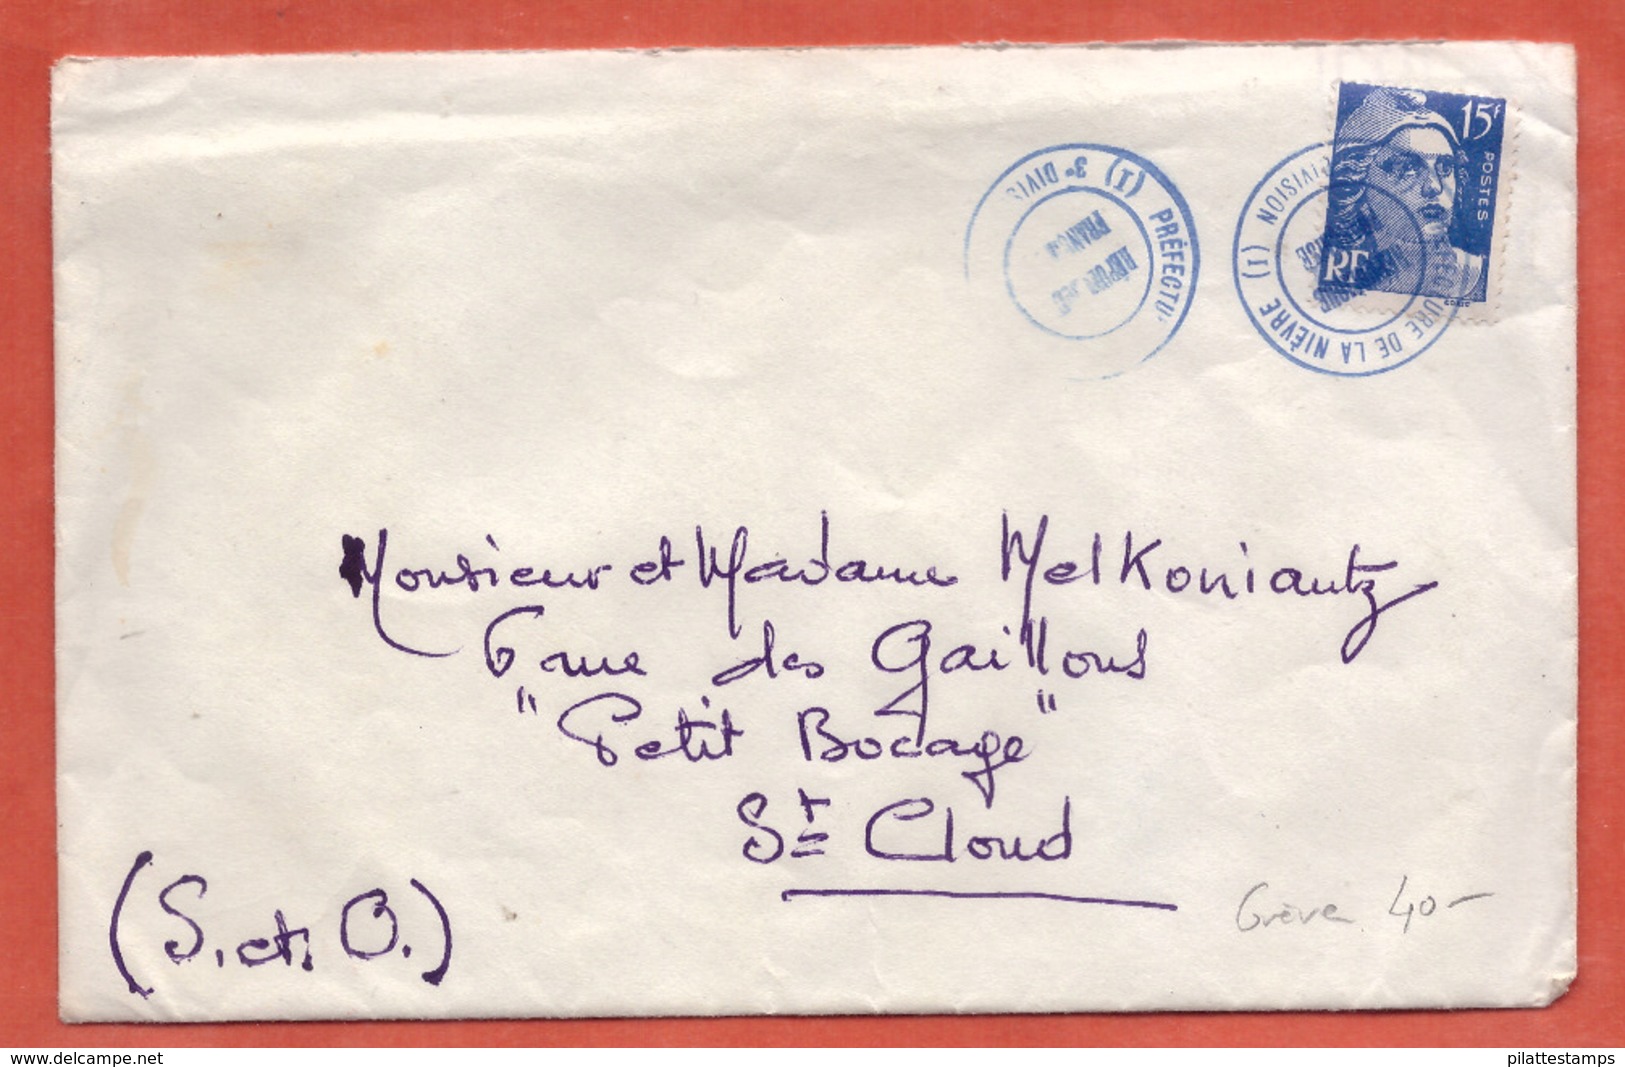 15F
POSTES
RF
3e DIVIS (I) PRÉFECTU
FRANÇ
PRÉFECTURE DE LA NIÈVRE (I) DIVISION
Monsieur et Madame Melkoniantz
6 rue des Gaillons
"Petit Bocage"
St Cloud
(S. et. O.)
Grève 40-
www.delcampe.net
pilattestamps